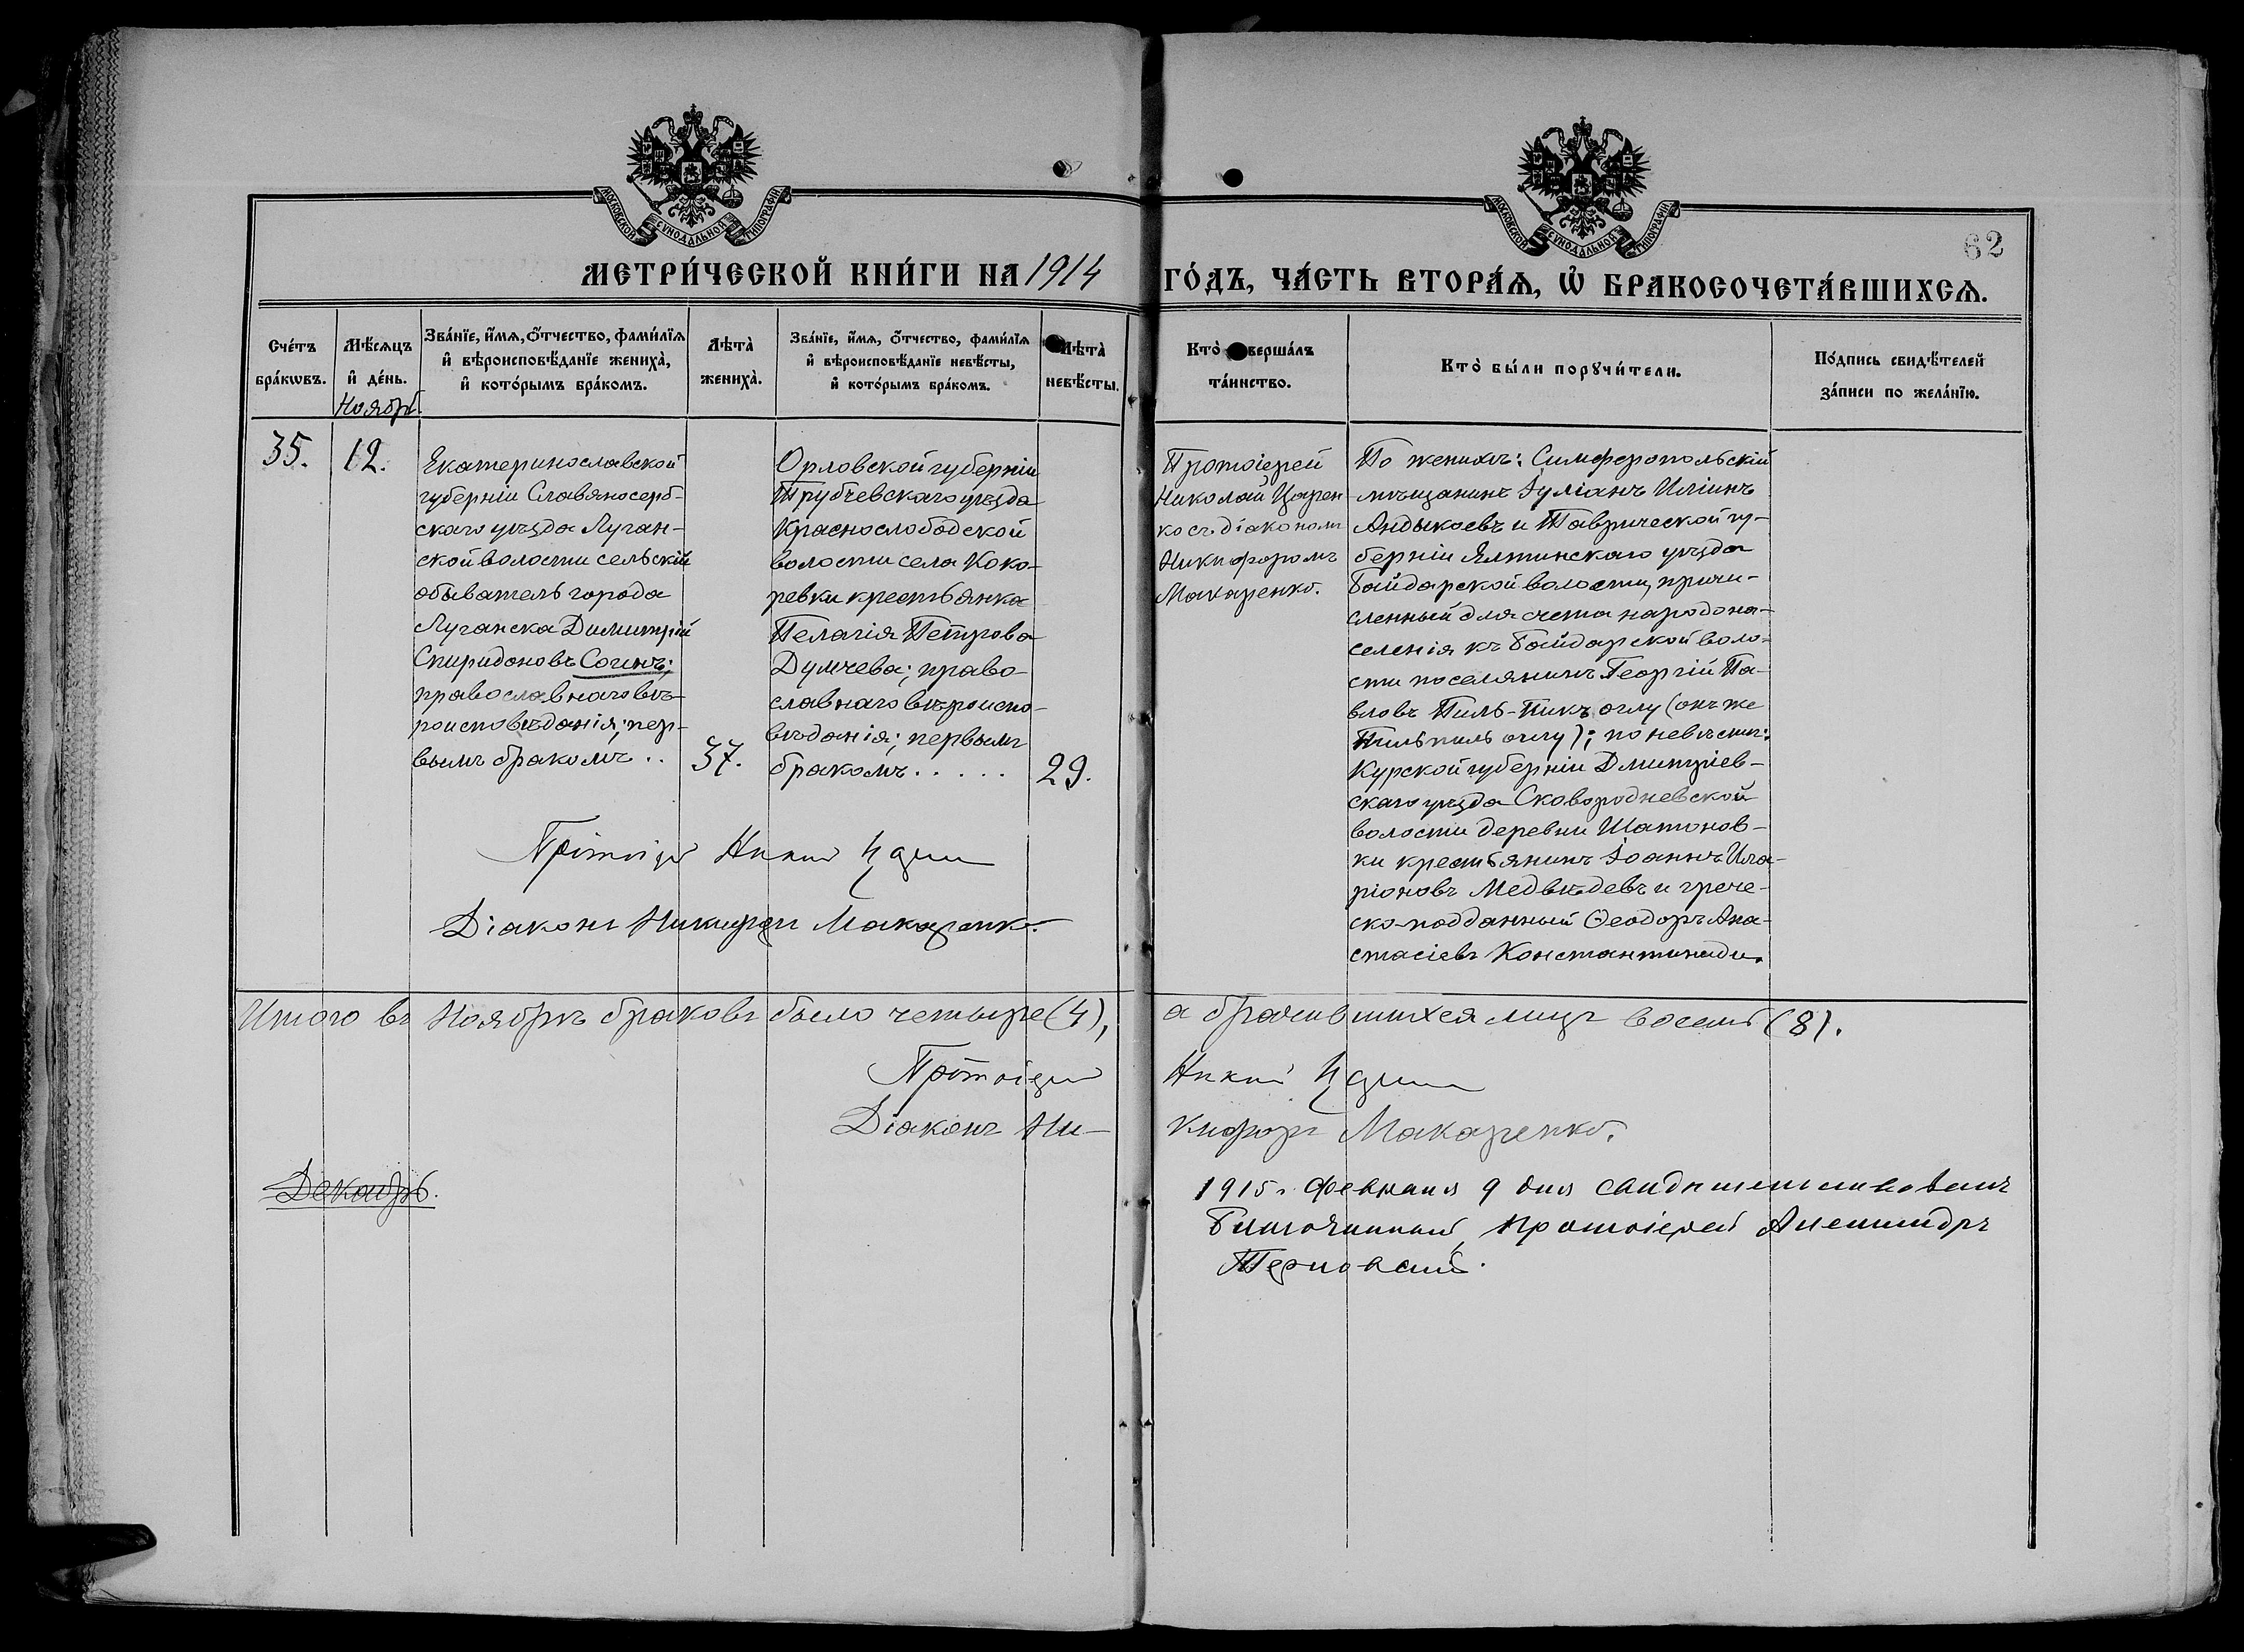 МОСКОВСКОЙ СУНОДАЛЬНОЙ ТИПОГРАФІИ
МОСКОВСКОЙ СУНОДАЛЬНОЙ ТИПОГРАФІИ
62
МЕТРИ́ЧЕСКОЙ КНИ́ГИ НА 1914 ГО́ДЪ, ЧА́СТЬ ВТОРА́Ѧ, Ѡ҆ БРАКОСОЧЕТА́ВШИХСѦ.
Сче́тъ
бра́кѡвъ.
Мѣ́сѧцъ
и҆ де́нь.
Ноябрь
Зва́нїе, и҆́мѧ, ѻ҆́тчество, фами́лїѧ
и҆ вѣроисповѣ́данїе жениха̀,
и҆ кото́рымъ бра́комъ.
Лѣта̀
жениха̀.
Зва́нїе, и҆́мѧ, ѻ҆́тчество, фами́лїѧ
и҆ вѣроисповѣ́данїе невѣ́сты,
и҆ кото́рымъ бра́комъ.
Лѣта̀
невѣ́сты.
Кто̀ вершалъ
та́инство.
Кто̀ бы́ли порꙋчи́тели.
По́дпись свидѣ́телей
за́писи по жела́нїю.
35.
12.
Екатеринославской
губерніи Славяносерб-
скаго уѣзда Луган-
ской волости сельскій
обыватель города
Луганска Димитрій
Спиридоновъ Согинъ;
православнаго вѣ-
роисповѣданія; пер-
вымъ бракомъ . .
37.
Орловской губерніи
Трубчевскаго уѣзда
Краснослободской
волости села Коко-
ревки крестьянка
Пелагія Петрова
Думчева; право-
славнаго вѣроиспо-
вѣданія; первымъ
бракомъ . . . . .
29.
Протоіерей
Николай Царен
ко съ діакономъ
Никифоромъ
Макаренко.
По женихѣ: Симферопольскій
мѣщанинъ Іуліанъ Иліинъ
Андыкоевъ и Таврической гу-
берніи Ялтинскаго уѣзда
Байдарской волости, причи-
сленный для счета народона-
селенія къ Байдарской воло-
сти поселянинъ Георгій Па-
вловъ Пиль-Пикъ оглу (онъ же
Пильпиль оглу); по невѣстѣ:
Курской губерніи Дмитріев-
скаго уѣзда Сковородневской
волости деревни Шатонов-
ки крестьянинъ Іоаннъ Ила-
ріоновъ Медвѣдевъ и грече-
ско-подданный Ѳеодоръ Ана-
стасіевъ Константиниди.
Протоіерей Николай Царенко
Діаконъ Никифоръ Макаренко.
Итого въ Ноябрѣ браковъ было четыре (4), а брачившихся лицъ восемь (8).
Протоіерей Николай Царенко
Діаконъ Никифоръ Макаренко.
Декабрь.
1915 г. Февраля 9 дня свидѣтельствовалъ
Благочинный, протоіерей Александръ
Терновскій.